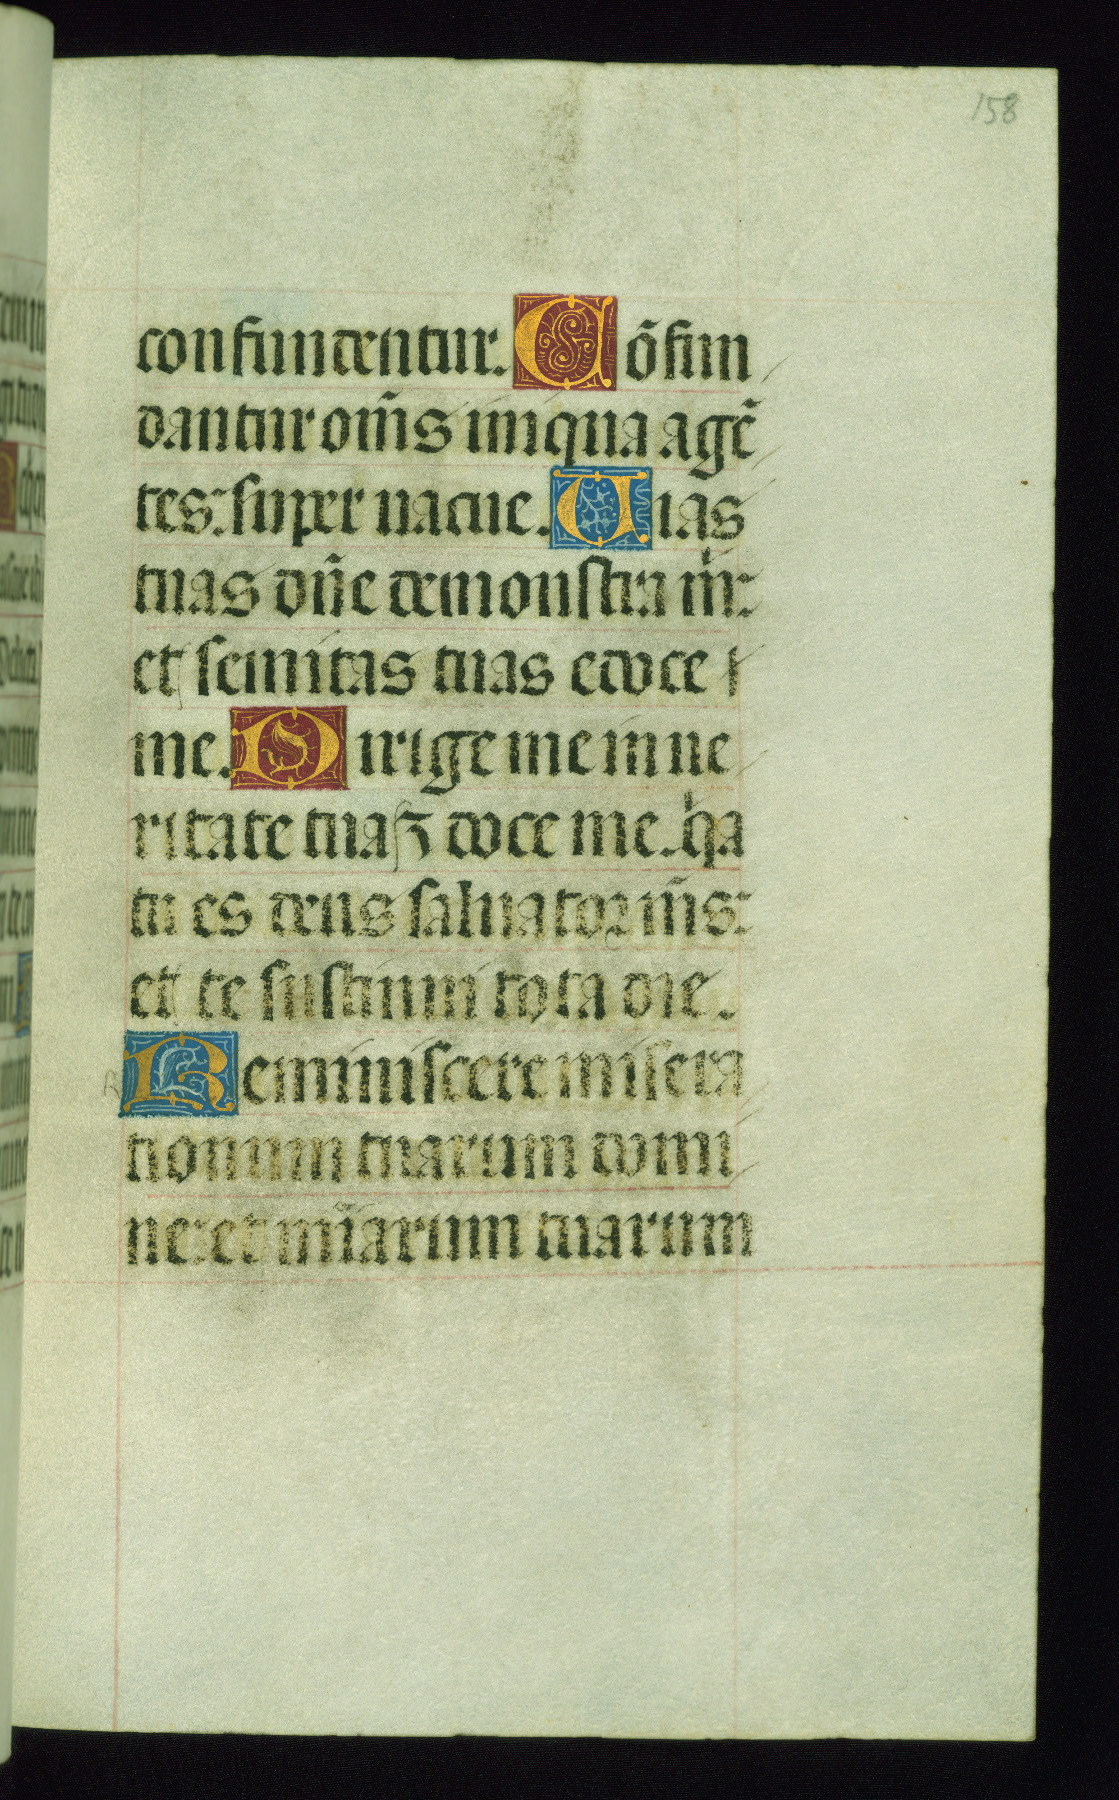 158
confundentur. Cōfun
dantur om̄s iniqua agē
tes: super uacue. Uias
tuas dn̄e demonstra m̄:
et semitas tuas edoce
me. Dirige me in ue
ritate tua ⁊ doce me. qa
tu es deus saluator m̄s:
et te sustinui tota die.
Reminiscere misera
tionum tuarum domi
ne: et mīarum tuarum